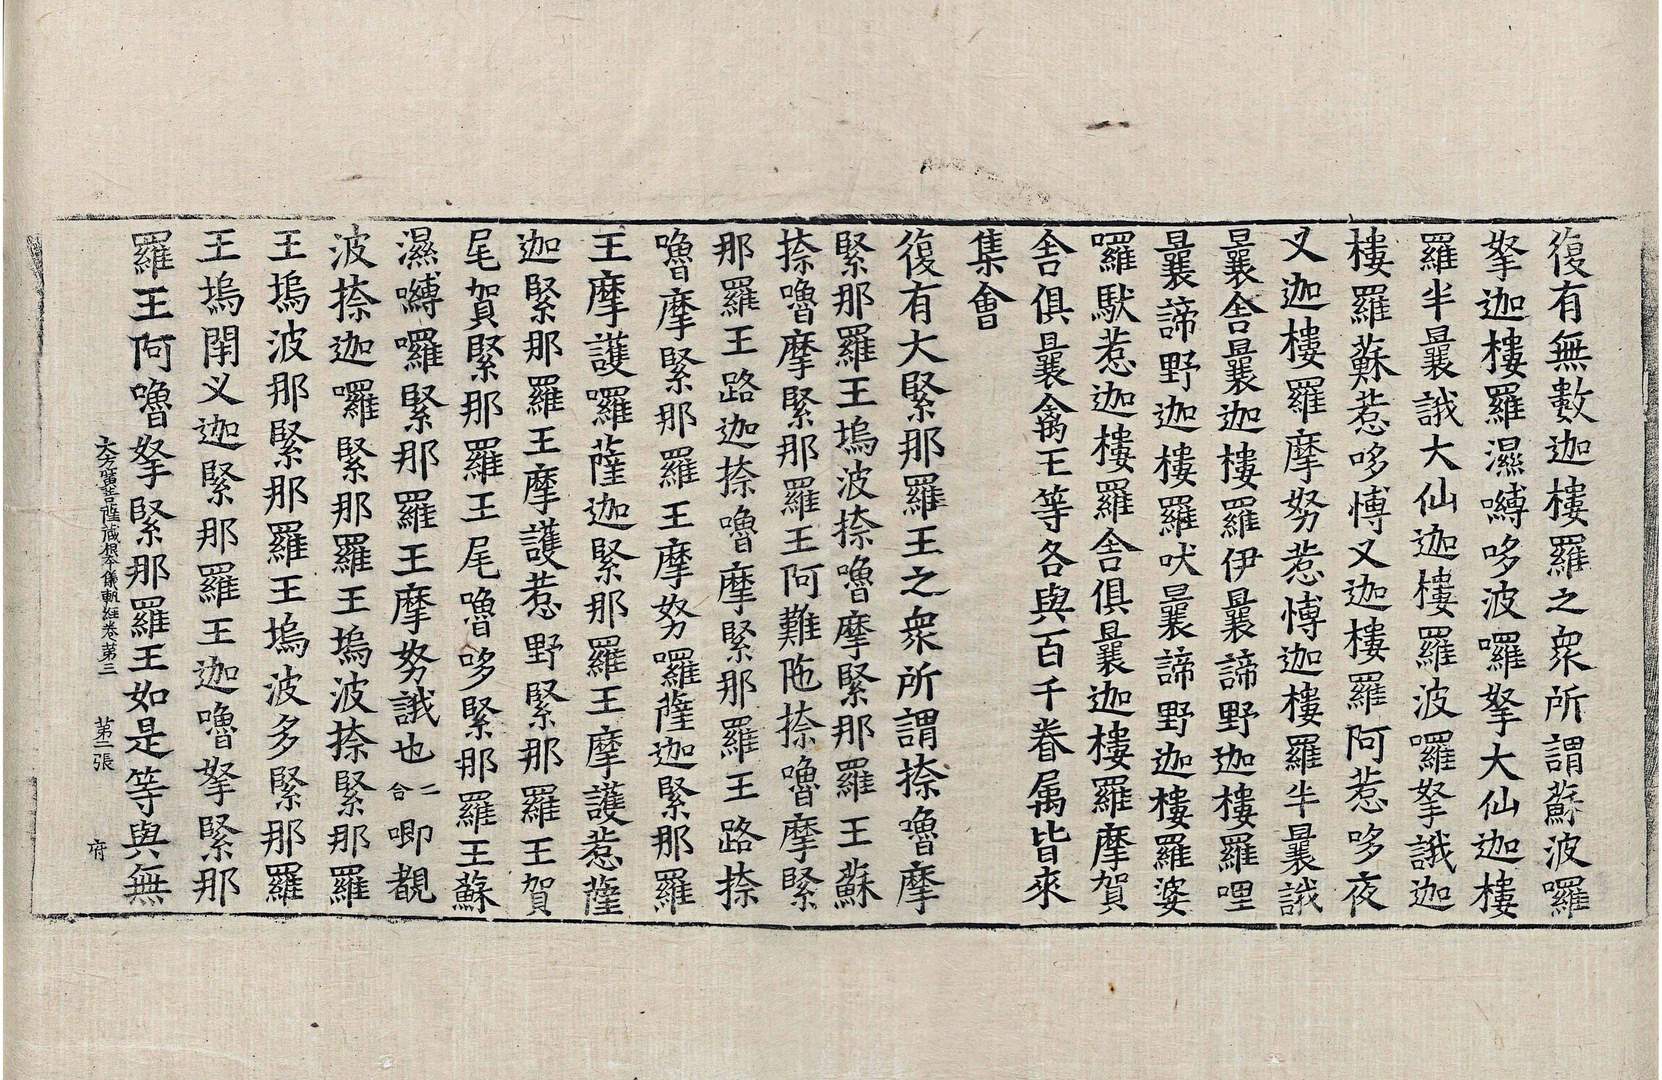 復有無數迦樓羅之衆所謂蘇波囉
拏迦樓羅濕嚩哆波囉拏大仙迦樓
羅半曩誐大仙迦樓羅波囉拏誐迦
樓羅蘇惹哆愽叉迦樓羅阿惹哆夜
叉迦樓羅摩努惹愽迦樓羅半曩誐
曩舍曩迦樓羅伊曩諦野迦樓羅哩
曩諦野迦樓羅吠曩諦野迦樓羅婆
囉馱惹迦樓羅舍俱曩迦樓羅摩賀
舍俱曩禽王等各與百千眷属皆來
集會
復有大緊那羅王之衆所謂捺嚕摩
緊那羅王塢波捺嚕摩緊那羅王蘇
捺嚕摩緊那羅王阿難陁捺嚕摩緊
那羅王路迦捺嚕摩緊那羅王路捺
嚕摩緊那羅王摩努囉薩迦緊那羅
王摩護囉薩迦緊那羅王摩護惹薩
迦緊那羅王摩護惹野緊那羅王賀
尾賀緊那羅王尾嚕哆緊那羅王蘇
濕嚩囉緊那羅王摩努誐也二合唧覩
波捺迦囉緊那羅王塢波捺緊那羅
王塢波那緊那羅王塢波多緊那羅
王塢閇义迦緊那羅王迦嚕拏緊那
羅王阿嚕拏緊那羅王如是等與無
大方廣菩薩藏根本儀軌經卷第三 第二張 府